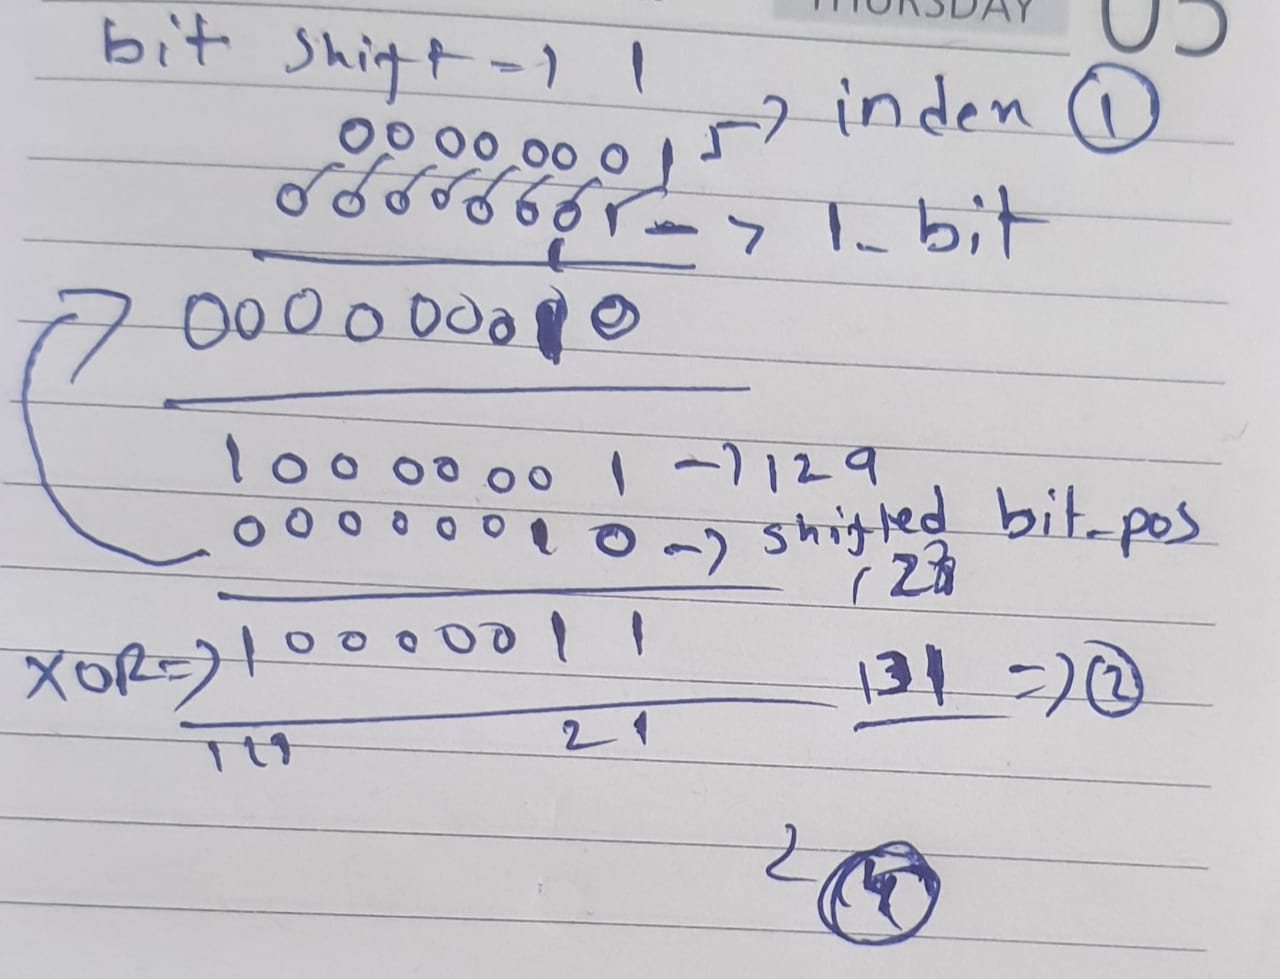 THURSDAY 05
bit shift -> 1 1
00000001 -> index ①
00000001 -> 1_bit
000000010
10000001 -> 129
00000010 -> shifted bit_pos
XOR => 10000011 131 => ②
2 1
2 ④